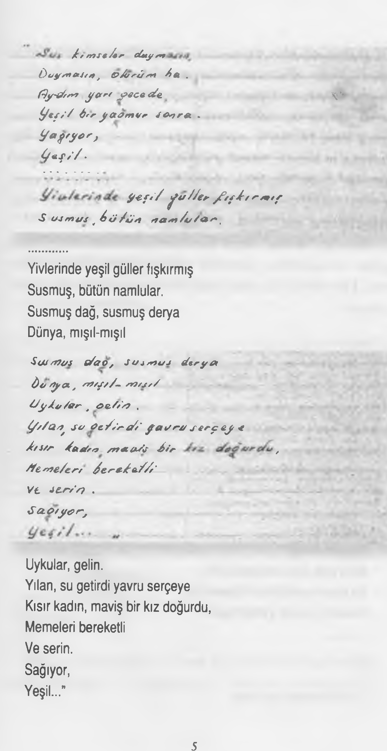 "Sus kimseler duymasın,
Duymasın, ölürüm ha.
Aydım yarı gecede,
Yeşil bir yağmur sonra.
Yağıyor,
Yeşil.
..........
Yivlerinde yeşil güller fışkırmış
Susmuş, bütün namlular.
............
Yivlerinde yeşil güller fışkırmış
Susmuş, bütün namlular.
Susmuş dağ, susmuş derya
Dünya, mışıl-mışıl
Susmuş dağ, susmuş derya
Dünya, mışıl-mışıl
Uykular, gelin.
Yılan, su getirdi yavru serçeye
kısır kadın, maviş bir kız doğurdu,
Memeleri bereketli
ve serin.
Sağıyor,
Yeşil... "
Uykular, gelin.
Yılan, su getirdi yavru serçeye
Kısır kadın, maviş bir kız doğurdu,
Memeleri bereketli
Ve serin.
Sağıyor,
Yeşil..."
5